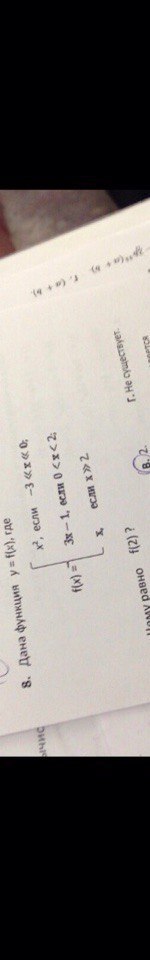 8. Дана функция y = f(x), где
x², если −3 ≪ x ≪ 0;
f(x) = 3x − 1, если 0 < x < 2;
x, если x ≫ 2
равно f(2) ?
В. 2.
Г. Не существует.
г. (a + b).